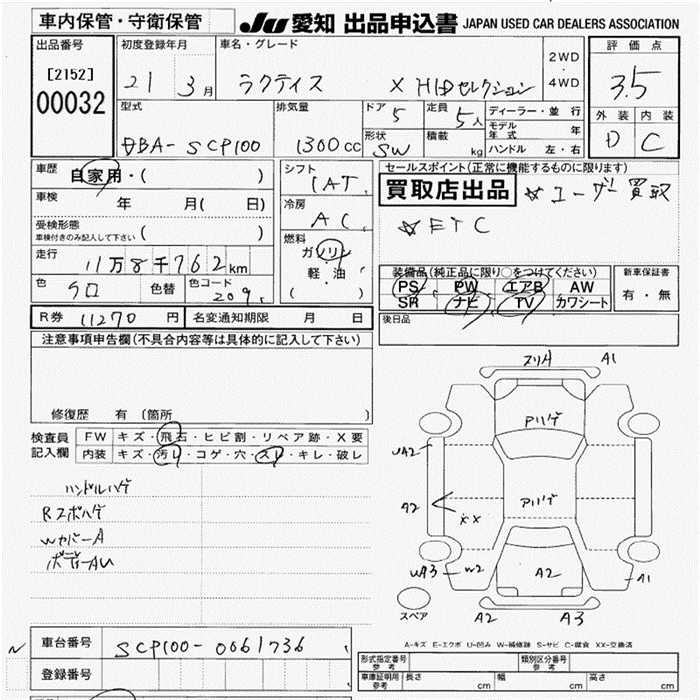 車内保管・守衛保管 JU 愛知 出品申込書 JAPAN USED CAR DEALERS ASSOCIATION
出品番号 初度登録年月 車名・グレード 2WD 評価点
[2152] 21 3月 ラクティス X HIDセレクション ・ 3.5
00032 4WD
型式 排気量 ドア 5 定員 5人 ディーラー・並行 外装 内装
DBA-SCP100 1300cc 形状 SW 積載 kg モデル年式 年 D C
ハンドル 左・右
車歴 自家用・( ) シフト IAT セールスポイント(正常に機能するものに限ります)
車検 年 月( 日) 冷房 AC 買取店出品 ☆ユーザー買取
受検形態 ( ) ☆ETC
車検付きのみ記入して下さい
燃料 ガソリン
走行 11万8千762km 軽・油
( )
装備品(純正品に限り○をつけてください) 新車保証書
色 クロ 色替 色コード 209 PS PW エアB AW 有・無
SR ナビ TV カワシート
R券 11270 円 名変通知期限 月 日 後日品
注意事項申告欄(不具合内容等は具体的に記入して下さい)
修復歴 有 (箇所
検査員 FW キズ・飛石・ヒビ割・リペア跡・X要
記入欄 内装 キズ・汚レ・コゲ・穴・スレ・キレ・破レ
ハンドルハゲ
Rスポハゲ
WカバーA
ボディーAU
スリA A1
Pリハゲ
UA2
A2 Pリハゲ
XX
UA3 W2 A2 A1
スペア A2 A3
A-キズ E-エクボ U-凹み W-補修跡 S-サビ C-腐食 XX-交換済
車台番号 SCP100-0061736
登録番号
形式指定番号 参考 類別区分番号 参考
車庫証明用 参考 長さ cm 幅 cm 高さ cm